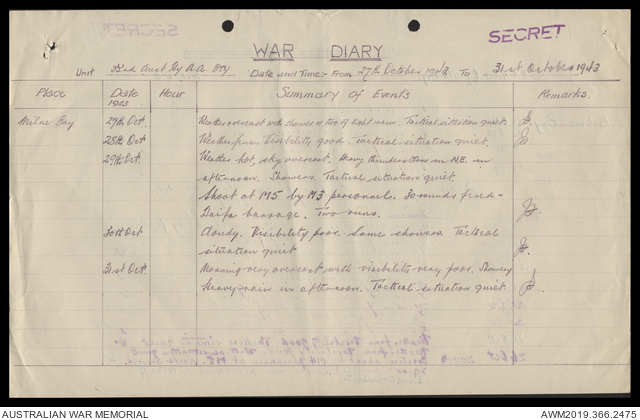 SECRET
WAR DIARY
Unit 23rd Aust Hy A.A. Bty Date and Time:- From 27th October 1943 To 31st October 1943
Place Date 1943 Hour Summary of Events Remarks
Milne Bay 27th Oct. Weather overcast with showers of light rain. Tactical situation quiet.
28th Oct. Weather fine. Visibility good. Tactical situation quiet.
29th Oct. Weather hot, sky overcast. Heavy thunderstorm in N.E. in
afternoon. Showers. Tactical situation quiet.
Shoot at M5 by M3 personnel. 30 rounds fired -
barrage. Two runs.
30th Oct Cloudy. Visibility poor. Some showers. Tactical
situation quiet
31st Oct. Morning very overcast with visibility very poor. Showery
Heavy rain in afternoon. Tactical situation quiet
AUSTRALIAN WAR MEMORIAL AWM2019.366.2475